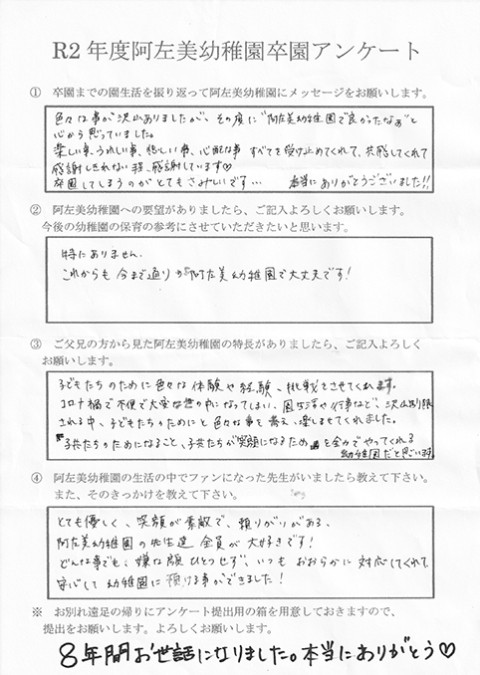 R2年度阿左美幼稚園卒園アンケート
① 卒園までの園生活を振り返って阿左美幼稚園にメッセージをお願いします。
色々な事が沢山ありましたが、その度に"阿左美幼稚園で良かったなぁ"と
心から思っていました。
楽しい事、うれしい事、悲しい事、心配な事 すべてを受け止めてくれて、共感してくれて
感謝しきれない程、感謝しています♡
卒園してしまうのがとてもさみしいです… 本当にありがとうございました!!
② 阿左美幼稚園への要望がありましたら、ご記入よろしくお願いします。
今後の幼稚園の保育の参考にさせていただきたいと思います。
特にありません。
これからも今まで通りの阿左美幼稚園で大丈夫です!
③ ご父兄の方から見た阿左美幼稚園の特長がありましたら、ご記入よろしく
お願いします。
子どもたちのために色々な体験や経験、挑戦をさせてくれます。
コロナ禍で不便で大変な世の中になってしまい、園生活や行事など、沢山制限
される中、子どもたちのためにと色々な事を考え、楽しませてくれました。
子供たちのためになること、子供たちが笑顔になるため を全力でやってくれる
幼稚園だと思います。
④ 阿左美幼稚園の生活の中でファンになった先生がいましたら教えて下さい。
また、そのきっかけを教えて下さい。
とても優しく、笑顔が素敵で、頼りがいがある、
阿左美幼稚園の先生達全員が大好きです!
どんな事でも、嫌な顔ひとつせず、いつもおおらかに対応してくれて
安心して幼稚園に預ける事ができました!
※ お別れ遠足の帰りにアンケート提出用の箱を用意しておきますので、
提出をお願いします。よろしくお願いします。
8年間お世話になりました。本当にありがとう♡